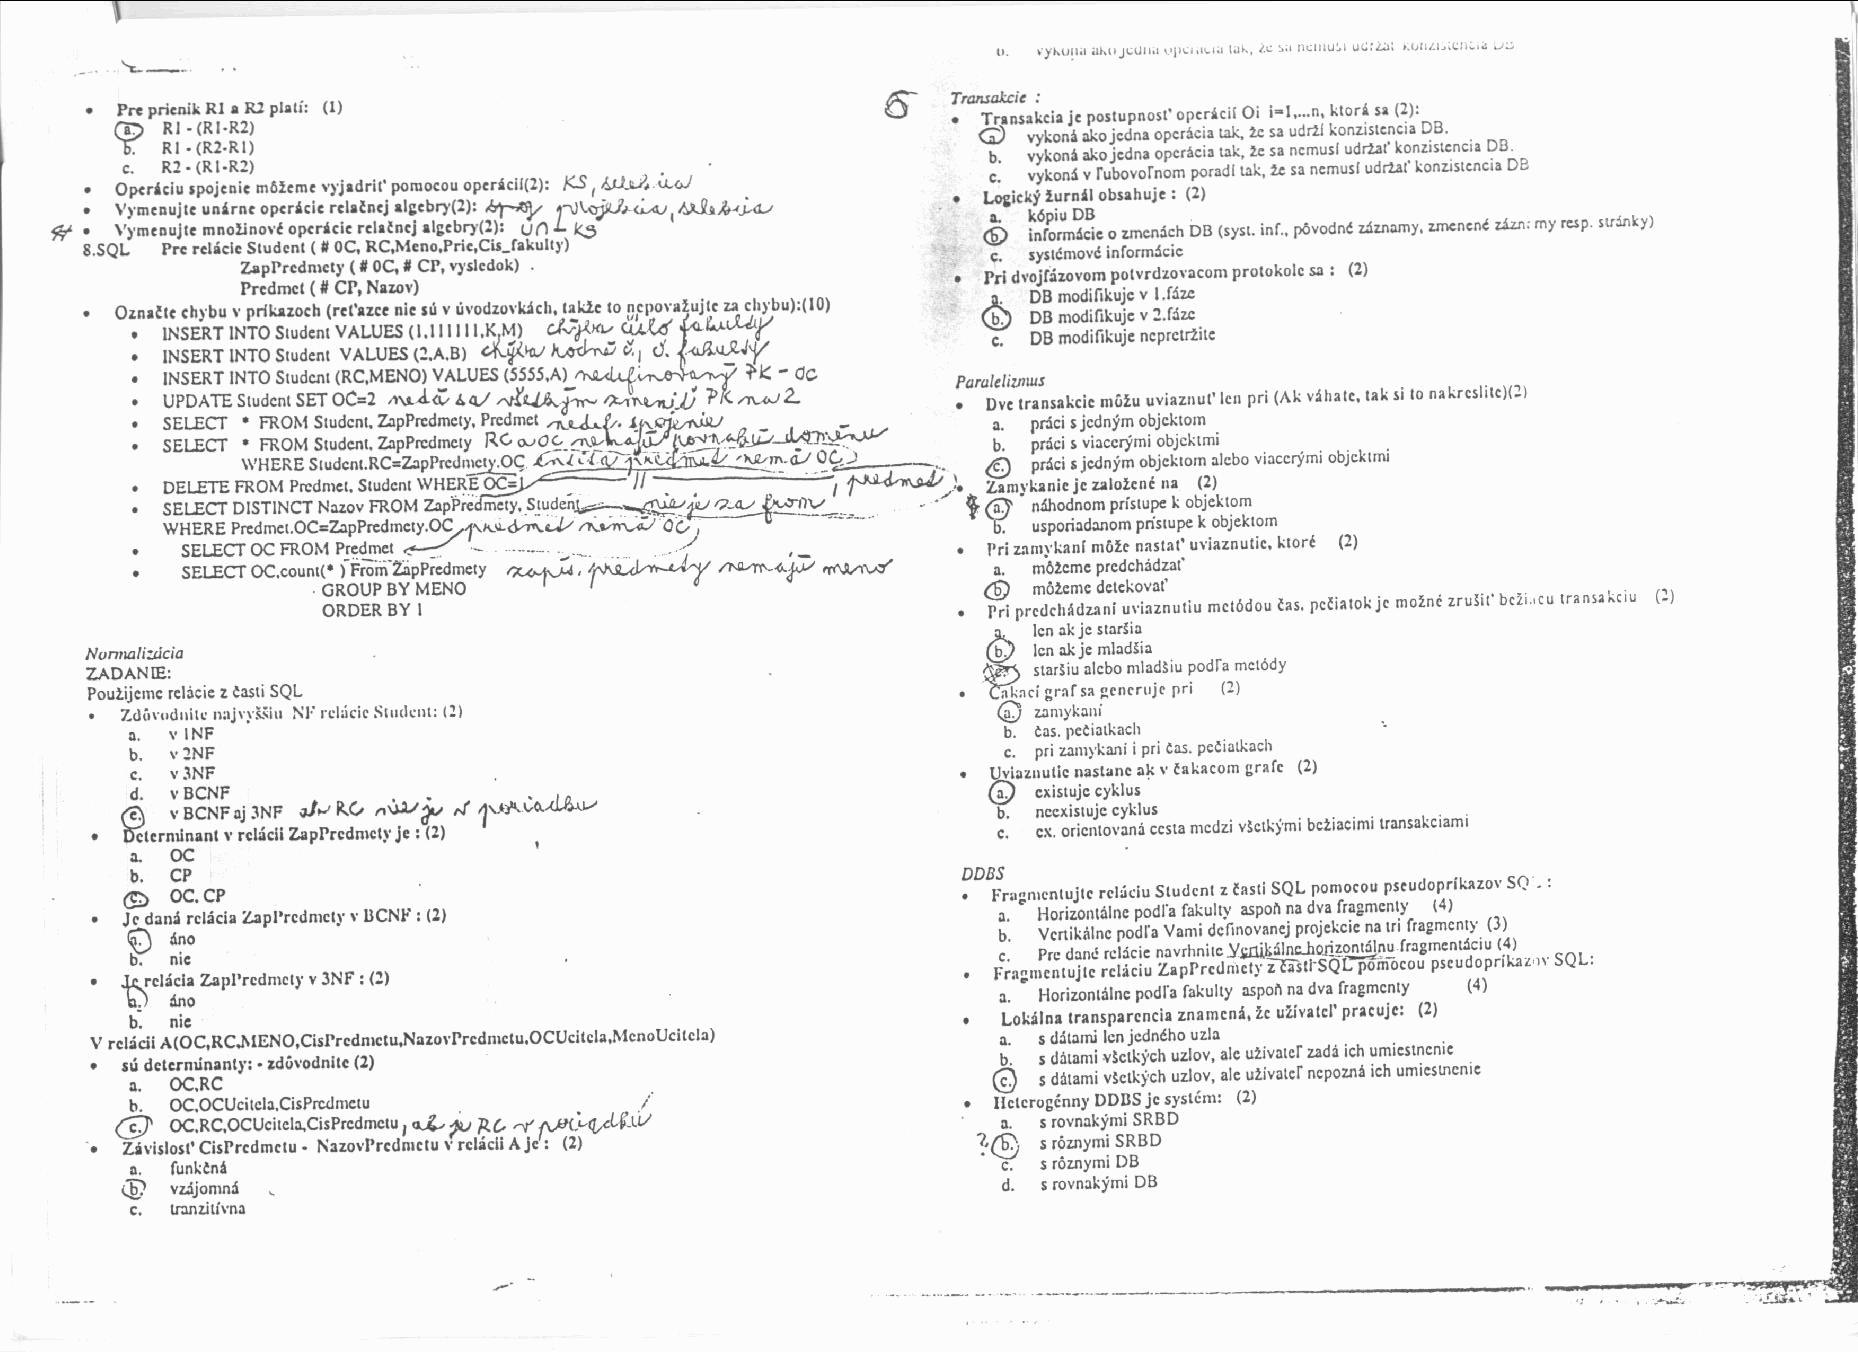 • Pre prienik R1 a R2 platí: (1)
a. R1 - (R1-R2)
b. R1 - (R2-R1)
c. R2 - (R1-R2)
• Operáciu spojenie môžeme vyjadriť pomocou operácií(2): KS, selekcia
• Vymenujte unárne operácie relačnej algebry(2): projekcia, selekcia
• Vymenujte množinové operácie relačnej algebry(2): ∪ ∩ - KS
8.SQL Pre relácie Student ( # OC, RC,Meno,Prie,Cis_fakulty)
ZapPredmety ( # OC, # CP, vysledok)
Predmet ( # CP, Nazov)
• Označte chybu v príkazoch (reťazce nie sú v úvodzovkách, takže to nepovažujte za chybu):(10)
• INSERT INTO Student VALUES (1,111111,K,M) chýba číslo fakulty
• INSERT INTO Student VALUES (2,A,B) chýba rodné č., č. fakulty
• INSERT INTO Student (RC,MENO) VALUES (5555,A) nedefinovaný PK - OC
• UPDATE Student SET OC=2 nedá sa všetkým zmeniť PK na 2
• SELECT * FROM Student, ZapPredmety, Predmet nedef. spojenie
• SELECT * FROM Student, ZapPredmety RC a OC nemajú rovnakú doménu
WHERE Student.RC=ZapPredmety.OC entita predmet nemá OC
• DELETE FROM Predmet, Student WHERE OC=1 , predmet
• SELECT DISTINCT Nazov FROM ZapPredmety, Student nie je za from
WHERE Predmet.OC=ZapPredmety.OC predmet nemá OC
• SELECT OC FROM Predmet
• SELECT OC,count(* ) From ZapPredmety zapis. predmety nemajú meno
GROUP BY MENO
ORDER BY 1
Normalizácia
ZADANIE:
Použijeme relácie z časti SQL
• Zdôvodnite najvyššiu NF relácie Student: (2)
a. v 1NF
b. v 2NF
c. v 3NF
d. v BCNF
e. v BCNF aj 3NF ak RC nie je v poriadku
• Determinant v relácii ZapPredmety je : (2)
a. OC
b. CP
c. OC, CP
• Je daná relácia ZapPredmety v BCNF : (2)
a. áno
b. nie
• Je relácia ZapPredmety v 3NF : (2)
a. áno
b. nie
V relácii A(OC,RC,MENO,CisPredmetu,NazovPredmetu,OCUcitela,MenoUcitela)
• sú determinanty: - zdôvodnite (2)
a. OC,RC
b. OC,OCUcitela,CisPredmetu
c. OC,RC,OCUcitela,CisPredmetu, ak je RC v poriadku
• Závislosť CisPredmetu - NazovPredmetu v relácii A je : (2)
a. funkčná
b. vzájomná
c. tranzitívna
b. vykoná ako jedna operácia tak, že sa nemusí udržať konzistencia DB
Transakcie :
• Transakcia je postupnosť operácií Oi i=1,...n, ktorá sa (2):
a. vykoná ako jedna operácia tak, že sa udrží konzistencia DB.
b. vykoná ako jedna operácia tak, že sa nemusí udržať konzistencia DB.
c. vykoná v ľubovoľnom poradí tak, že sa nemusí udržať konzistencia DB
• Logický žurnál obsahuje : (2)
a. kópiu DB
b. informácie o zmenách DB (syst. inf., pôvodné záznamy, zmenené záznamy resp. stránky)
c. systémové informácie
• Pri dvojfázovom potvrdzovacom protokole sa : (2)
a. DB modifikuje v 1.fáze
b. DB modifikuje v 2.fáze
c. DB modifikuje nepretržite
Paralelizmus
• Dve transakcie môžu uviaznuť len pri (Ak váhate, tak si to nakreslite)(2)
a. práci s jedným objektom
b. práci s viacerými objektmi
c. práci s jedným objektom alebo viacerými objektmi
• Zamykanie je založené na (2)
a. náhodnom prístupe k objektom
b. usporiadanom prístupe k objektom
• Pri zamykaní môže nastať uviaznutie, ktoré (2)
a. môžeme predchádzať
b. môžeme detekovať
• Pri predchádzaní uviaznutiu metódou čas. pečiatok je možné zrušiť bežiacu transakciu (2)
a. len ak je staršia
b. len ak je mladšia
staršiu alebo mladšiu podľa metódy
• Čakací graf sa generuje pri (2)
a. zamykaní
b. čas. pečiatkach
c. pri zamykaní i pri čas. pečiatkach
• Uviaznutie nastane ak v čakacom grafe (2)
a. existuje cyklus
b. neexistuje cyklus
c. ex. orientovaná cesta medzi všetkými bežiacimi transakciami
DDBS
• Fragmentujte reláciu Student z časti SQL pomocou pseudopríkazov SQL :
a. Horizontálne podľa fakulty aspoň na dva fragmenty (4)
b. Vertikálne podľa Vami definovanej projekcie na tri fragmenty (3)
c. Pre dané relácie navrhnite Vertikálne horizontálnu fragmentáciu (4)
• Fragmentujte reláciu ZapPredmety z časti SQL pomocou pseudopríkazov SQL:
a. Horizontálne podľa fakulty aspoň na dva fragmenty (4)
• Lokálna transparencia znamená, že užívateľ pracuje: (2)
a. s dátami len jedného uzla
b. s dátami všetkých uzlov, ale užívateľ zadá ich umiestnenie
c. s dátami všetkých uzlov, ale užívateľ nepozná ich umiestnenie
• Heterogénny DDBS je systém: (2)
a. s rovnakými SRBD
? b. s rôznymi SRBD
c. s rôznymi DB
d. s rovnakými DB